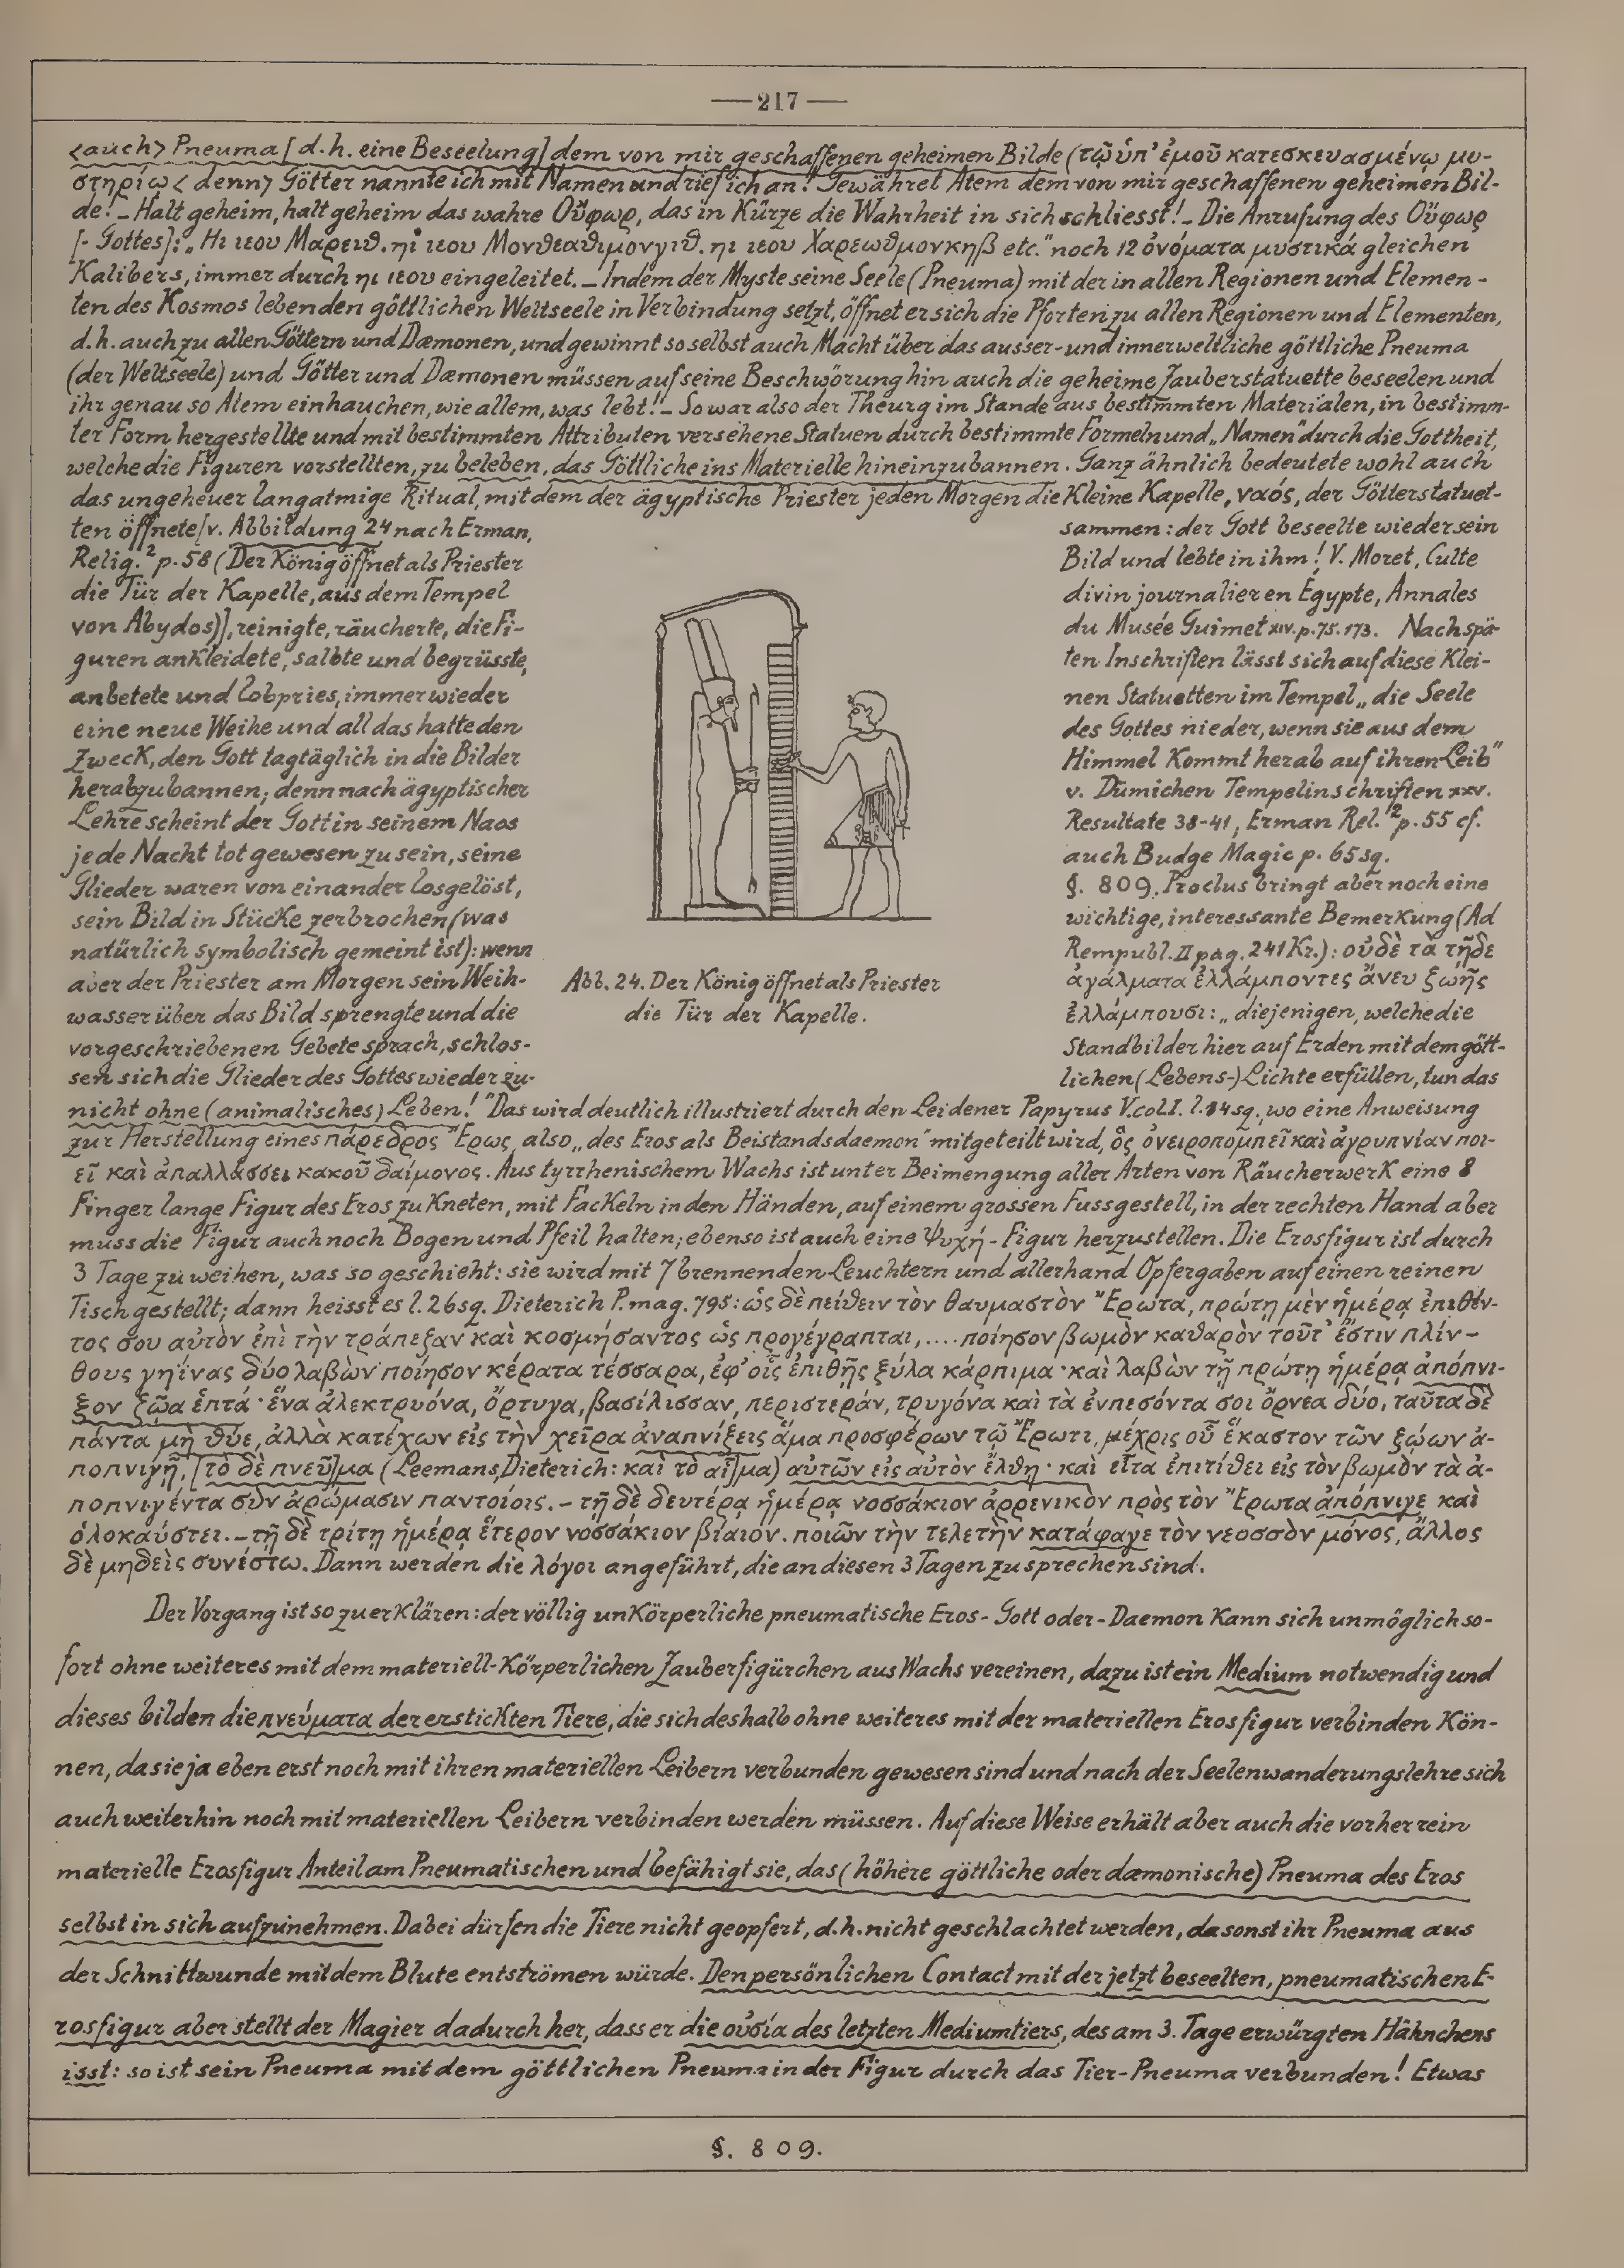 — 217 —
<auch> Pneuma [d.h. eine Beseelung] dem von mir geschaffenen geheimen Bilde (τῷ ὑπ' ἐμοῦ κατεσκευασμένῳ μυ-
στηρίῳ < denn> Götter nannte ich mit Namen und rief ich an! Gewähret Atem dem von mir geschaffenen geheimen Bil-
de! – Halt geheim, halt geheim das wahre Οὔφωρ, das in Kürze die Wahrheit in sich schliesst! – Die Anrufung des Οὔφωρ
[- Gottes]: „Ηι ιεου Μαρειθ. ηι ιεου Μονθεαθιμονγιθ. ηι ιεου Χαρεωθμονκηβ etc." noch 12 ὀνόματα μυστικά gleichen
Kalibers, immer durch ηι ιεου eingeleitet. – Indem der Myste seine Seele (Pneuma) mit der in allen Regionen und Elemen-
ten des Kosmos lebenden göttlichen Weltseele in Verbindung setzt, öffnet er sich die Pforten zu allen Regionen und Elementen,
d.h. auch zu allen Göttern und Dæmonen, und gewinnt so selbst auch Macht über das ausser- und innerweltliche göttliche Pneuma
(der Weltseele) und Götter und Dæmonen müssen auf seine Beschwörung hin auch die geheime Zauberstatuette beseelen und
ihr genau so Atem einhauchen, wie allem, was lebt! – So war also der Theurg im Stande aus bestimmten Materialen, in bestimm-
ter Form hergestellte und mit bestimmten Attributen versehene Statuen durch bestimmte Formeln und „Namen" durch die Gottheit,
welche die Figuren vorstellten, zu beleben, das Göttliche ins Materielle hineinzubannen. Ganz ähnlich bedeutete wohl auch
das ungeheuer langatmige Ritual, mit dem der ägyptische Priester jeden Morgen die Kleine Kapelle, ναός, der Götterstatuet-
ten öffnete [v. Abbildung 24 nach Erman,
Relig.² p. 58 (Der König öffnet als Priester
die Tür der Kapelle, aus dem Tempel
von Abydos)], reinigte, räucherte, die Fi-
guren ankleidete, salbte und begrüsste,
anbetete und lobpries, immer wieder
eine neue Weihe und all das hatte den
Zweck, den Gott tagtäglich in die Bilder
herabzubannen; denn nach ägyptischer
Lehre scheint der Gott in seinem Naos
jede Nacht tot gewesen zu sein, seine
Glieder waren von einander losgelöst,
sein Bild in Stücke zerbrochen (was
natürlich symbolisch gemeint ist): wenn
aber der Priester am Morgen sein Weih-
wasser über das Bild sprengte und die
vorgeschriebenen Gebete sprach, schlos-
sen sich die Glieder des Gottes wieder zu-
Abb. 24. Der König öffnet als Priester
die Tür der Kapelle.
sammen: der Gott beseelte wieder sein
Bild und lebte in ihm! V. Moret, Culte
divin journalier en Égypte, Annales
du Musée Guimet XIV. p. 75. 173. Nach spä-
ten Inschriften lässt sich auf diese Klei-
nen Statuetten im Tempel „die Seele
des Gottes nieder, wenn sie aus dem
Himmel Kommt herab auf ihren Leib"
v. Dümichen Tempelinschriften XXV.
Resultate 38-41, Erman Rel.² p. 55 cf.
auch Budge Magic p. 65 sq.
§. 809. Proclus bringt aber noch eine
wichtige, interessante Bemerkung (Ad
Rempubl. II pag. 241 Kr.): οὐδὲ τὰ τῇδε
ἀγάλματα ἐλλάμποντες ἄνευ ζωῆς
ἐλλάμπουσι: „diejenigen, welche die
Standbilder hier auf Erden mit dem gött-
lichen (Lebens-) Lichte erfüllen, tun das
nicht ohne (animalisches) Leben!" Das wird deutlich illustriert durch den Leidener Papyrus V. col. I. l. 24 sq., wo eine Anweisung
zur Herstellung eines πάρεδρος Ἔρως, also „des Eros als Beistandsdaemon" mitgeteilt wird, ὃς ὀνειροπομπεῖ καὶ ἀγρυπνίαν ποι-
εῖ καὶ ἀπαλλάσσει κακοῦ δαίμονος. Aus tyrrhenischem Wachs ist unter Beimengung aller Arten von Räucherwerk eine 8
Finger lange Figur des Eros zu Kneten, mit Fackeln in den Händen, auf einem grossen Fussgestell, in der rechten Hand aber
muss die Figur auch noch Bogen und Pfeil halten; ebenso ist auch eine Ψυχή-Figur herzustellen. Die Erosfigur ist durch
3 Tage zu weihen, was so geschieht: sie wird mit 7 brennenden Leuchtern und allerhand Opfergaben auf einen reinen
Tisch gestellt; dann heisst es l. 26 sq. Dieterich P. mag. 795: ὡς δὲ πείθειν τὸν θαυμαστὸν Ἔρωτα, πρώτῃ μὲν ἡμέρᾳ ἐπιθέν-
τος σου αὐτὸν ἐπὶ τὴν τράπεζαν καὶ κοσμήσαντος ὡς προγέγραπται, .... ποίησον βωμὸν καθαρὸν τοῦτ' ἔστιν πλίν-
θους γηΐνας δύο λαβὼν ποίησον κέρατα τέσσαρα, ἐφ' οἷς ἐπιθῇς ξύλα κάρπιμα · καὶ λαβὼν τῇ πρώτῃ ἡμέρᾳ ἀπόπνι-
ξον ζῷα ἑπτά · ἕνα ἀλεκτρυόνα, ὄρτυγα, βασίλισσαν, περιστεράν, τρυγόνα καὶ τὰ ἐνπεσόντα σοι ὄρνεα δύο, ταῦτα δὲ
πάντα μὴ θῦε, ἀλλὰ κατέχων εἰς τὴν χεῖρα ἀναπνίξεις ἅμα προσφέρων τῷ Ἔρωτι, μέχρις οὗ ἕκαστον τῶν ζῴων ἀ-
ποπνιγῇ, [τὸ δὲ πνεῦ]μα (Leemans, Dieterich: καὶ τὸ αἷ]μα) αὐτῶν εἰς αὐτὸν ἔλθῃ · καὶ εἶτα ἐπιτίθει εἰς τὸν βωμὸν τὰ ἀ-
ποπνιγέντα σὺν ἀρώμασιν παντοίοις. – τῇ δὲ δευτέρᾳ ἡμέρᾳ νοσσάκιον ἀρρενικὸν πρὸς τὸν Ἔρωτα ἀπόπνιγε καὶ
ὁλοκαύστει. – τῇ δὲ τρίτῃ ἡμέρᾳ ἕτερον νοσσάκιον βίαιον. ποιῶν τὴν τελετὴν κατάφαγε τὸν νεοσσὸν μόνος, ἄλλος
δὲ μηδεὶς συνέστω. Dann werden die λόγοι angeführt, die an diesen 3 Tagen zu sprechen sind.
Der Vorgang ist so zu erklären: der völlig unkörperliche pneumatische Eros-Gott oder-Daemon Kann sich unmöglich so-
fort ohne weiteres mit dem materiell-Körperlichen Zauberfigürchen aus Wachs vereinen, dazu ist ein Medium notwendig und
dieses bilden die πνεύματα der erstickten Tiere, die sich deshalb ohne weiteres mit der materiellen Erosfigur verbinden Kön-
nen, da sie ja eben erst noch mit ihren materiellen Leibern verbunden gewesen sind und nach der Seelenwanderungslehre sich
auch weiterhin noch mit materiellen Leibern verbinden werden müssen. Auf diese Weise erhält aber auch die vorher rein
materielle Erosfigur Anteil am Pneumatischen und befähigt sie, das (höhere göttliche oder dæmonische) Pneuma des Eros
selbst in sich aufzunehmen. Dabei dürfen die Tiere nicht geopfert, d.h. nicht geschlachtet werden, da sonst ihr Pneuma aus
der Schnittwunde mit dem Blute entströmen würde. Den persönlichen Contact mit der jetzt beseelten, pneumatischen E-
rosfigur aber stellt der Magier dadurch her, dass er die οὐσία des letzten Mediumtiers, des am 3. Tage erwürgten Hähnchens
isst: so ist sein Pneuma mit dem göttlichen Pneuma in der Figur durch das Tier-Pneuma verbunden! Etwas
§. 809.